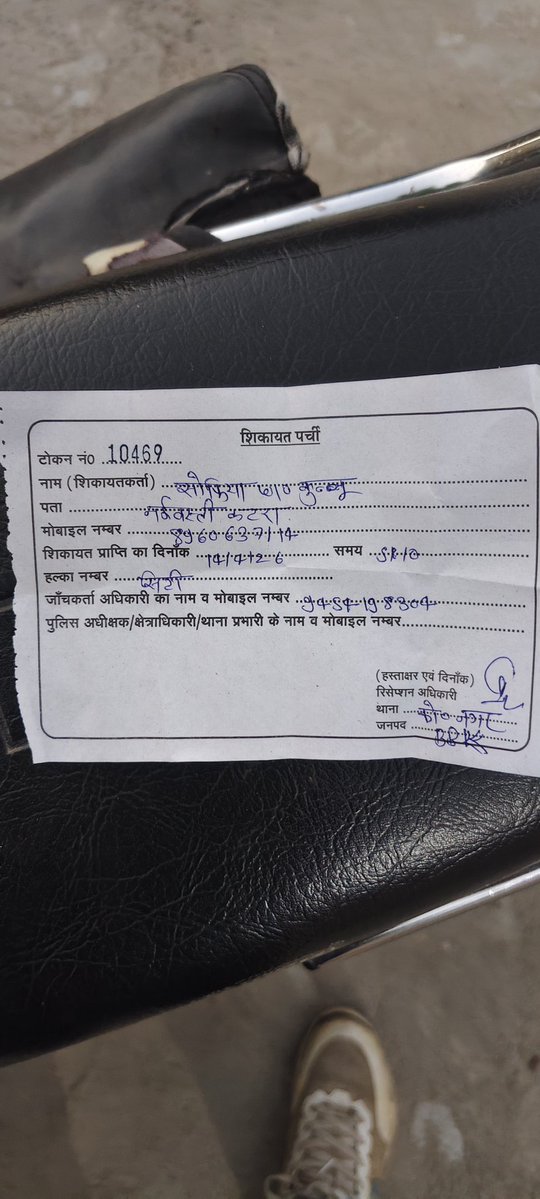 शिकायत पर्ची
टोकन नं० 10469
नाम (शिकायतकर्ता) सोफिया
पता नई बस्ती कटरा
मोबाइल नम्बर 8960637114
शिकायत प्राप्ति का दिनाँक 14/4/26 समय
हल्का नम्बर सिटी
जाँचकर्ता अधिकारी का नाम व मोबाइल नम्बर 9454198304
पुलिस अधीक्षक/क्षेत्राधिकारी/थाना प्रभारी के नाम व मोबाइल नम्बर
(हस्ताक्षर एवं दिनाँक)
रिसेप्शन अधिकारी
थाना को० नगर
जनपव BBK